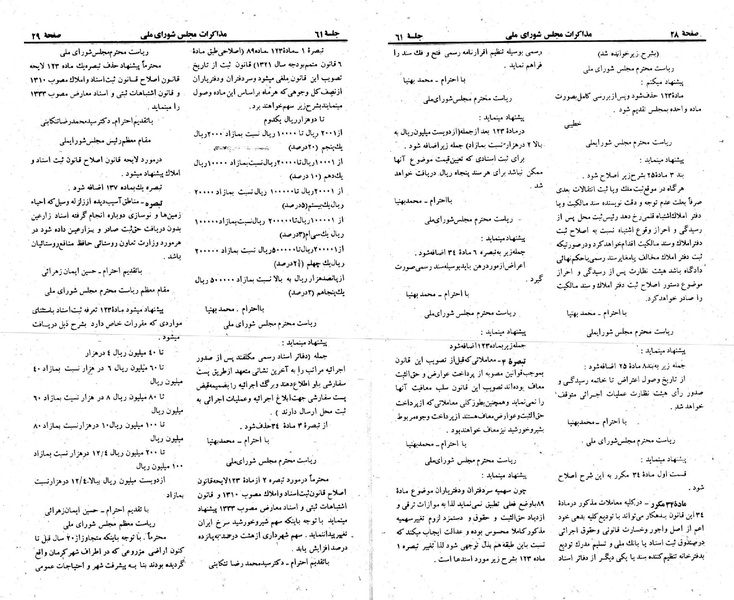 صفحه ۲۸ مذاکرات مجلس شورای ملی جلسه ۶۱
(بشرح زیر خوانده شد)
ریاست محترم مجلس شورای ملی
پیشنهاد میکنم :
ماده ۱۲۳ حذف شود و پس از بررسی کامل بصورت
ماده واحده بمجلس تقدیم شود .
خطیبی
ریاست محترم مجلس شورایملی
پیشنهاد مینماید :
بند ۳ ماده ۲۵ بشرح زیر اصلاح شود .
هرگاه در موقع ثبت ملک و یا ثبت انتقالات بعدی
صرفاً بعلت عدم توجه و دقت نویسنده سند مالکیت و یا
دفتر املاک اشتباه قلمی رخ دهد رئیس ثبت محل پس از
رسیدگی و احراز وقوع اشتباه نسبت به اصلاح ثبت
دفتر املاک و سند مالکیت اقدام خواهد کرد و در صورتیکه
ثبت دفتر املاک مخالف پیامغایر سند رسمی یا حکم نهائی
دادگاه باشد هیئت نظارت پس از رسیدگی و احراز
موضوع دستور اصلاح ثبت دفتر املاک و سند مالکیت
را صادر خواهد کرد.
با احترام - محمد بهنیا
ریاست محترم مجلس شورایملی
پیشنهاد مینماید :
جمله زیر به بند ۸ ماده ۲۵ اضافه شود :
از تاریخ وصول اعتراض تا خاتمه رسیدگی و
صدور رأی هیئت نظارت عملیات اجرائی متوقف
خواهد شد .
با احترام - محمد بهنیا
ریاست محترم مجلس شورایملی
پیشنهاد مینماید :
قسمت اول ماده ۳۴ مکرر به این شرح اصلاح
شود .
ماده ۳۴ مکرر - در کلیه معاملات مذکور در ماده
۳۴ این قانون بدهکار میتواند با تودیع کلیه بدهی خود
اعم از اصل و اجور و خسارت قانونی و حقوق اجرائی
در صندوق ثبت اسناد یا بانک ملی و تسلیم مدرک تودیع
بدفترخانه تنظیم کننده سند یا یکی دیگر از دفاتر اسناد
رسمی بوسیله تنظیم اقرارنامه رسمی فتح و فک سند را
فراهم نماید .
با احترام - محمد بهنیا
ریاست محترم مجلس شورایملی
پیشنهاد مینماید :
درماده ۱۲۳ بعد از جمله (از دویست میلیون ریال به
بالا ۲ در هزار نسبت بمازاد) جمله زیر اضافه شود .
برای ثبت اسنادی که تعیین قیمت موضوع آنها
ممکن نباشد برای هر سند پنجاه ریال دریافت خواهد
شد .
با احترام - محمد بهنیا
ریاست محترم مجلس شورای ملی
پیشنهاد مینماید :
جمله زیر به تبصره ۶ ماده ۳۴ اضافه شود .
اعراض از مورد رهن باید بوسیله سند رسمی صورت
گیرد .
با احترام - محمد بهنیا
ریاست محترم مجلس شورای ملی
پیشنهاد مینماید :
جمله زیر به ماده ۱۲۳ اضافه شود
تبصره - معاملاتی که قبل از تصویب این قانون
بموجب قوانین مصوبه از پرداخت عوارض و حق الثبت
معاف بوده اند تصویب این قانون سلب معافیت آنها
را نمی نماید و همچنین بطور کلی معاملاتی که از پرداخت
حق الثبت و عوارض معاف هستند از پرداخت وجوه مربوط
بشیر و خورشید نیز معاف خواهند بود .
با احترام - محمد بهنیا
ریاست محترم مجلس شورایملی
پیشنهاد مینماید :
چون سهمیه سردفتران و دفتریاران موضوع ماده
۸۹ باوضع فعلی تطبیق نمی نماید لذا به موازات ترقی و
ازدیاد حق الثبت و حقوق و دستمزد لزوم تغییر سهمیه
مذکور کاملا محسوس بوده و عدالت ایجاب میکند که
نسبت باین طبقه هم بذل توجهی شود لذا تغییر تبصره ۱
ماده ۱۲۳ بشرح زیر مورد استدعا است .
جلسه ۶۱ مذاکرات مجلس شورای ملی صفحه ۲۹
تبصره ۱ - ماده ۱۲۳ - ماده ۸۹ (اصلاحی طبق ماده
۶ قانون متمم بودجه سال ۱۳۲۱) قانون ثبت از تاریخ
تصویب این قانون ملغی میشود و سردفتران و دفتریاران
از نصف کل وجوهی که هر ماه بر اساس این ماده وصول
مینمایند بشرح زیر سهم خواهند برد.
تا دو هزار ریال یکدوم
از ۲۰۰۱ ریال تا ۱۰۰۰۰ ریال نسبت بمازاد ۲۰۰۰ ریال
یک پنجم (۲۰ درصد)
از ۱۰۰۰۱ ریال تا ۲۰۰۰۰ ریال نسبت بمازاد ۱۰۰۰۰ ریال
یک دهم (۱۰ درصد)
از ۲۰۰۰۱ ریال تا ۱۰۰۰۰۰ ریال نسبت بمازاد ۲۰۰۰۰
ریال یک بیستم (۵ درصد)
از ۱۰۰۰۰۱ ریال تا ۲۰۰۰۰۰ ریال نسبت بمازاد ۱۰۰۰۰۰
ریال یک سی ام (۳ درصد)
از ۲۰۰۰۰۱ ریال تا ۵۰۰۰۰۰ ریال نسبت بمازاد ۲۰۰۰۰۰
ریال یک چهلم (۲½ درصد)
از پانصد هزار ریال به بالا نسبت بمازاد ۵۰۰۰۰۰ ریال
یک پنجاهم (۲ درصد)
با احترام - محمد بهنیا
ریاست محترم مجلس شورای ملی
پیشنهاد مینماید :
جمله (دفاتر اسناد رسمی مکلفند پس از صدور
اجرائیه مراتب را به آخرین نشانی متعهد از طریق پست
سفارشی باو اطلاع دهند و برگ اجرائیه را بضمیمه قبض
پست سفارشی جهت ابلاغ اجرائیه و عملیات اجرائی به
ثبت محل ارسال دارند ) .
از تبصره ۳ ماده ۳۴ حذف شود .
با احترام - محمد بهنیا
ریاست محترم مجلس شورای ملی
محترماً در مورد تبصره ۲ از ماده ۱۲۳ لایحه قانون
اصلاح قانون ثبت اسناد و املاک مصوب ۱۳۱۰ و قانون
اشتباهات ثبتی و اسناد معارض مصوب ۱۳۳۳ پیشنهاد
مینماید با توجه باینکه سهم شیر و خورشید سرخ ایران
تغییر پیدا نماید . سهم شهرداری از هشت درصد به پانزده
درصد افزایش یابد .
با تقدیم احترام - دکتر سید محمدرضا تنکابنی
ریاست محترم مجلس شورای ملی
محترماً پیشنهاد حذف تبصره یک ماده ۱۲۳ لایحه
قانون اصلاح قانون ثبت اسناد و املاک مصوب ۱۳۱۰
و قانون اشتباهات ثبتی و اسناد معارض مصوب ۱۳۳۳
را مینماید .
با تقدیم احترام - دکتر سید محمدرضا تنکابنی
مقام معظم رئیس مجلس شورایملی
در مورد لایحه قانون اصلاح قانون ثبت اسناد و
املاک پیشنهاد میشود .
تبصره یک بماده ۱۳۷ اضافه شود .
تبصره - مناطق آسیب دیده از زلزله وسیل که احیاء
زمین ها و نوسازی دوباره انجام گرفته اسناد زارعین
بدون دریافت حق ثبت صادر و بزارعین داده شود در
هر مورد وزارت تعاون روستائی حافظ منافع روستائیان
باشد .
با تقدیم احترام - حسین ایمان زهرائی
مقام معظم ریاست مجلس شورای ملی
پیشنهاد میشود ماده ۱۲۳ تعرفه ثبت اسناد باستثنای
مواردی که مقررات خاص دارد بشرح ذیل دریافت
میشود .
تا ۴۰ میلیون ریال ۴ در هزار
تا ۶۰ میلیون ریال ۶ در هزار نسبت بمازاد ۴۰
میلیون ریال
تا ۸۰ میلیون ریال ۸ در هزار نسبت بمازاد ۶۰
میلیون ریال
تا ۱۰۰ میلیون ریال ۱۰ در هزار نسبت بمازاد ۸۰
میلیون ریال
تا ۲۰۰ میلیون ریال ۱۲/۴ در هزار نسبت بمازاد
۱۰۰ میلیون ریال
از دویست میلیون ریال ببالا ۱۲/۴ در هزار نسبت
بمازاد
با تقدیم احترام - حسین ایمان زهرائی
ریاست معظم مجلس شورای ملی
محترماً . با توجه باینکه متجاوز از ۲۰ سال قبل تا
کنون اراضی مزروعی که در اطراف شهر کرمان واقع
گردیده بودند بنا به پیشرفت شهر و احتیاجات عمومی